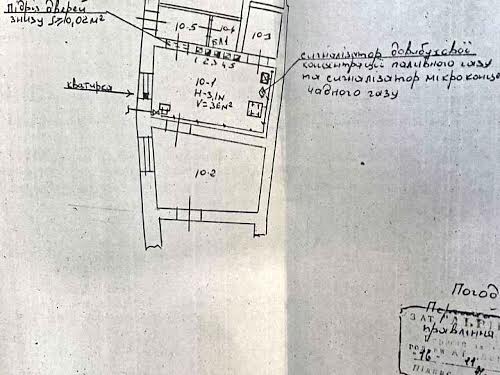 підріз дверей
знизу S≥0,02м²
10-5
10-4
10-3
1 2 3 4 5
10-1
H-3,1м
V=36м³
кватирка
сигналізатор довибухової
концентрації паливного газу
та сигналізатор мікроконц
чадного газу
10-2
Погод
ЗАТ
правління
16 11